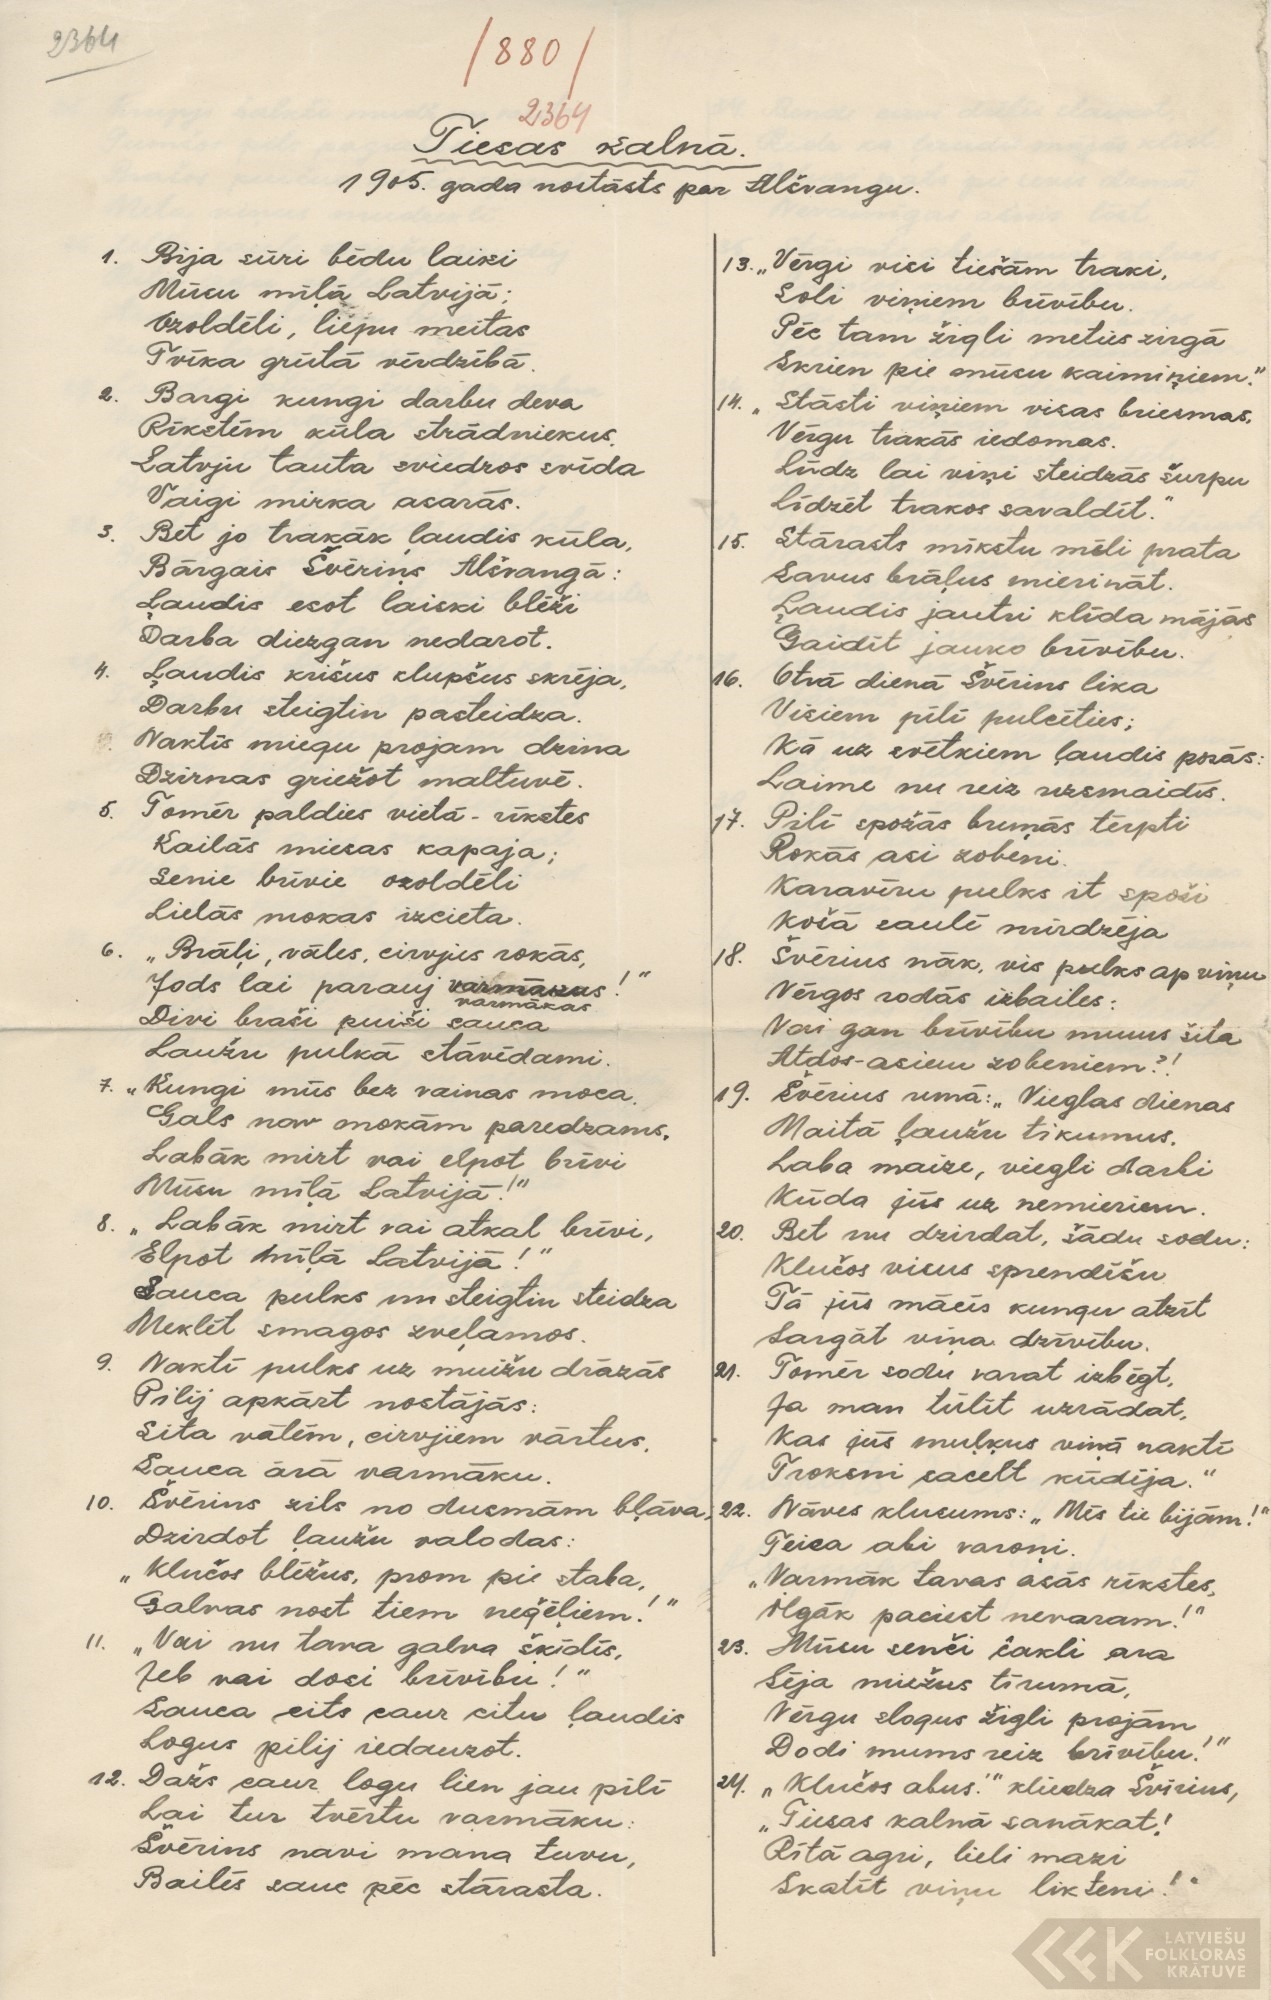 2364
/880/
2364
Tiesas kalnā.
1905. gada nostāsts par Alšvangu.
1. Bija sūri bēdu laiki
Mūsu mīļā Latvijā;
Ozoldēli, liepu meitas
Tvīka grūtā vērdzībā.
2. Bargi kungi darbu deva
Rīkstēm kūla strādniekus.
Latvju tauta sviedros svīda
Vaigi mirka asarās.
3. Bet jo trakāk ļaudis kūla,
Bārgais Švēriņs Alšvangā:
Ļaudis esot laiski blēži
Darba diezgan nedarot.
4. Ļaudis krišus klupšus skrēja,
Darbu steigtin pasteidza.
Naktīs miegu projam dzina
Dzirnas griežot maltuvē.
5. Tomēr paldies vietā - rīkstes
Kailās miesas kapaja;
Senie brīvie ozoldēli
Lielās mokas izcieta.
6. „Brāļi, vāles, cirvjus rokās,
Jods lai parauj varmākus!"
varmākas
Divi braši puiši sauca
Laužu pulkā stāvēdami.
7. „Kungi mūs bez vainas moca.
Gals nav mokām paredzams.
Labāk mirt vai elpot brīvi
Mūsu mīļā Latvijā!"
8. „Labāk mirt vai atkal brīvi,
Elpot mīļā Latvijā!"
Sauca pulks un steigtin steidza
Meklēt smagos zveļamos.
9. Naktī pulks uz muižu drāzās
Pilij apkārt nostājās:
Sita vālēm, cirvjiem vārtus,
Sauca ārā varmāku.
10. Švērins zils no dusmām bļāva,
Dzirdot ļaužu valodas:
„Klučos blēžus, prom pie staba,
Galvas nost tiem neģēļiem!"
11. „Vai nu tava galva šķīdīs,
Jeb vai dosi brīvību!"
Sauca cits caur citu ļaudis
Logus pilij iedauzot.
12. Dažs caur logu lien jau pilī
Lai tur tvērtu varmāku:
Švērins navi mana tuvu,
Bailēs sauc pēc stārasta.
13. „Vērgi visi tiešām traki,
Soli viņiem brīvību.
Pēc tam žigli meties zirgā
Skrien pie mūsu kaimiņiem."
14. „Stāsti viņiem visas briesmas,
Vērgu trakās iedomas.
Lūdz lai viņi steidzās šurpu
Līdzēt trakos savaldīt."
15. Stārasts mīkstu mēli prata
Savus brāļus mierināt.
Ļaudis jautri klīda mājās
Gaidīt jauko brīvību.
16. Otrā dienā Švērins lika
Visiem pilī pulcēties;
Kā uz svētkiem ļaudis posās:
Laime nu reiz uzsmaidīs.
17. Pilī spožās bruņās tērpti
Rokās asi zobeņi.
Karavīru pulks it spoži
Košā saulē mirdzēja
18. Švērius nāk, vis pulks ap viņu
Vērgos rodās izbailes:
Vai gan brīvību mums šitā
Atdos-asieu zobeniem?!
19. Švērius runā: „Vieglas dienas
Maitā ļaužu tikumus.
Laba maize, viegli darbi
Kūda jūs uz nemieriem.
20. Bet nu dzirdat, šādu sodu:
Klučos visus sprendīšu
Tā jūs mācīs kungu atzīt
Sargāt viņa dzīvību.
21. Tomēr sodu varat izbēgt,
Ja man tūlīt uzrādat,
Kas jūs muļķus viņā naktī
Troksni sacelt kūdīja."
22. Nāves klusums: „Mēs tie bijām!"
Teica abi varoņi.
„Varmāk tavas asās rīkstes,
Ilgāk paciest nevaram!"
23. Mūsu senči čakli ara
Sēja miežus tīrumā,
Vērgu slogus žigli projām
Dodi mums reiz brīvību!"
24. „Klučos abus!" kliedza Švērius,
„Tiesas kalnā sanākat!
Rītā agri, lieli mazi
Skatīt viņu likteni!"
LATVIEŠU
FOLKLORAS
KRĀTUVE